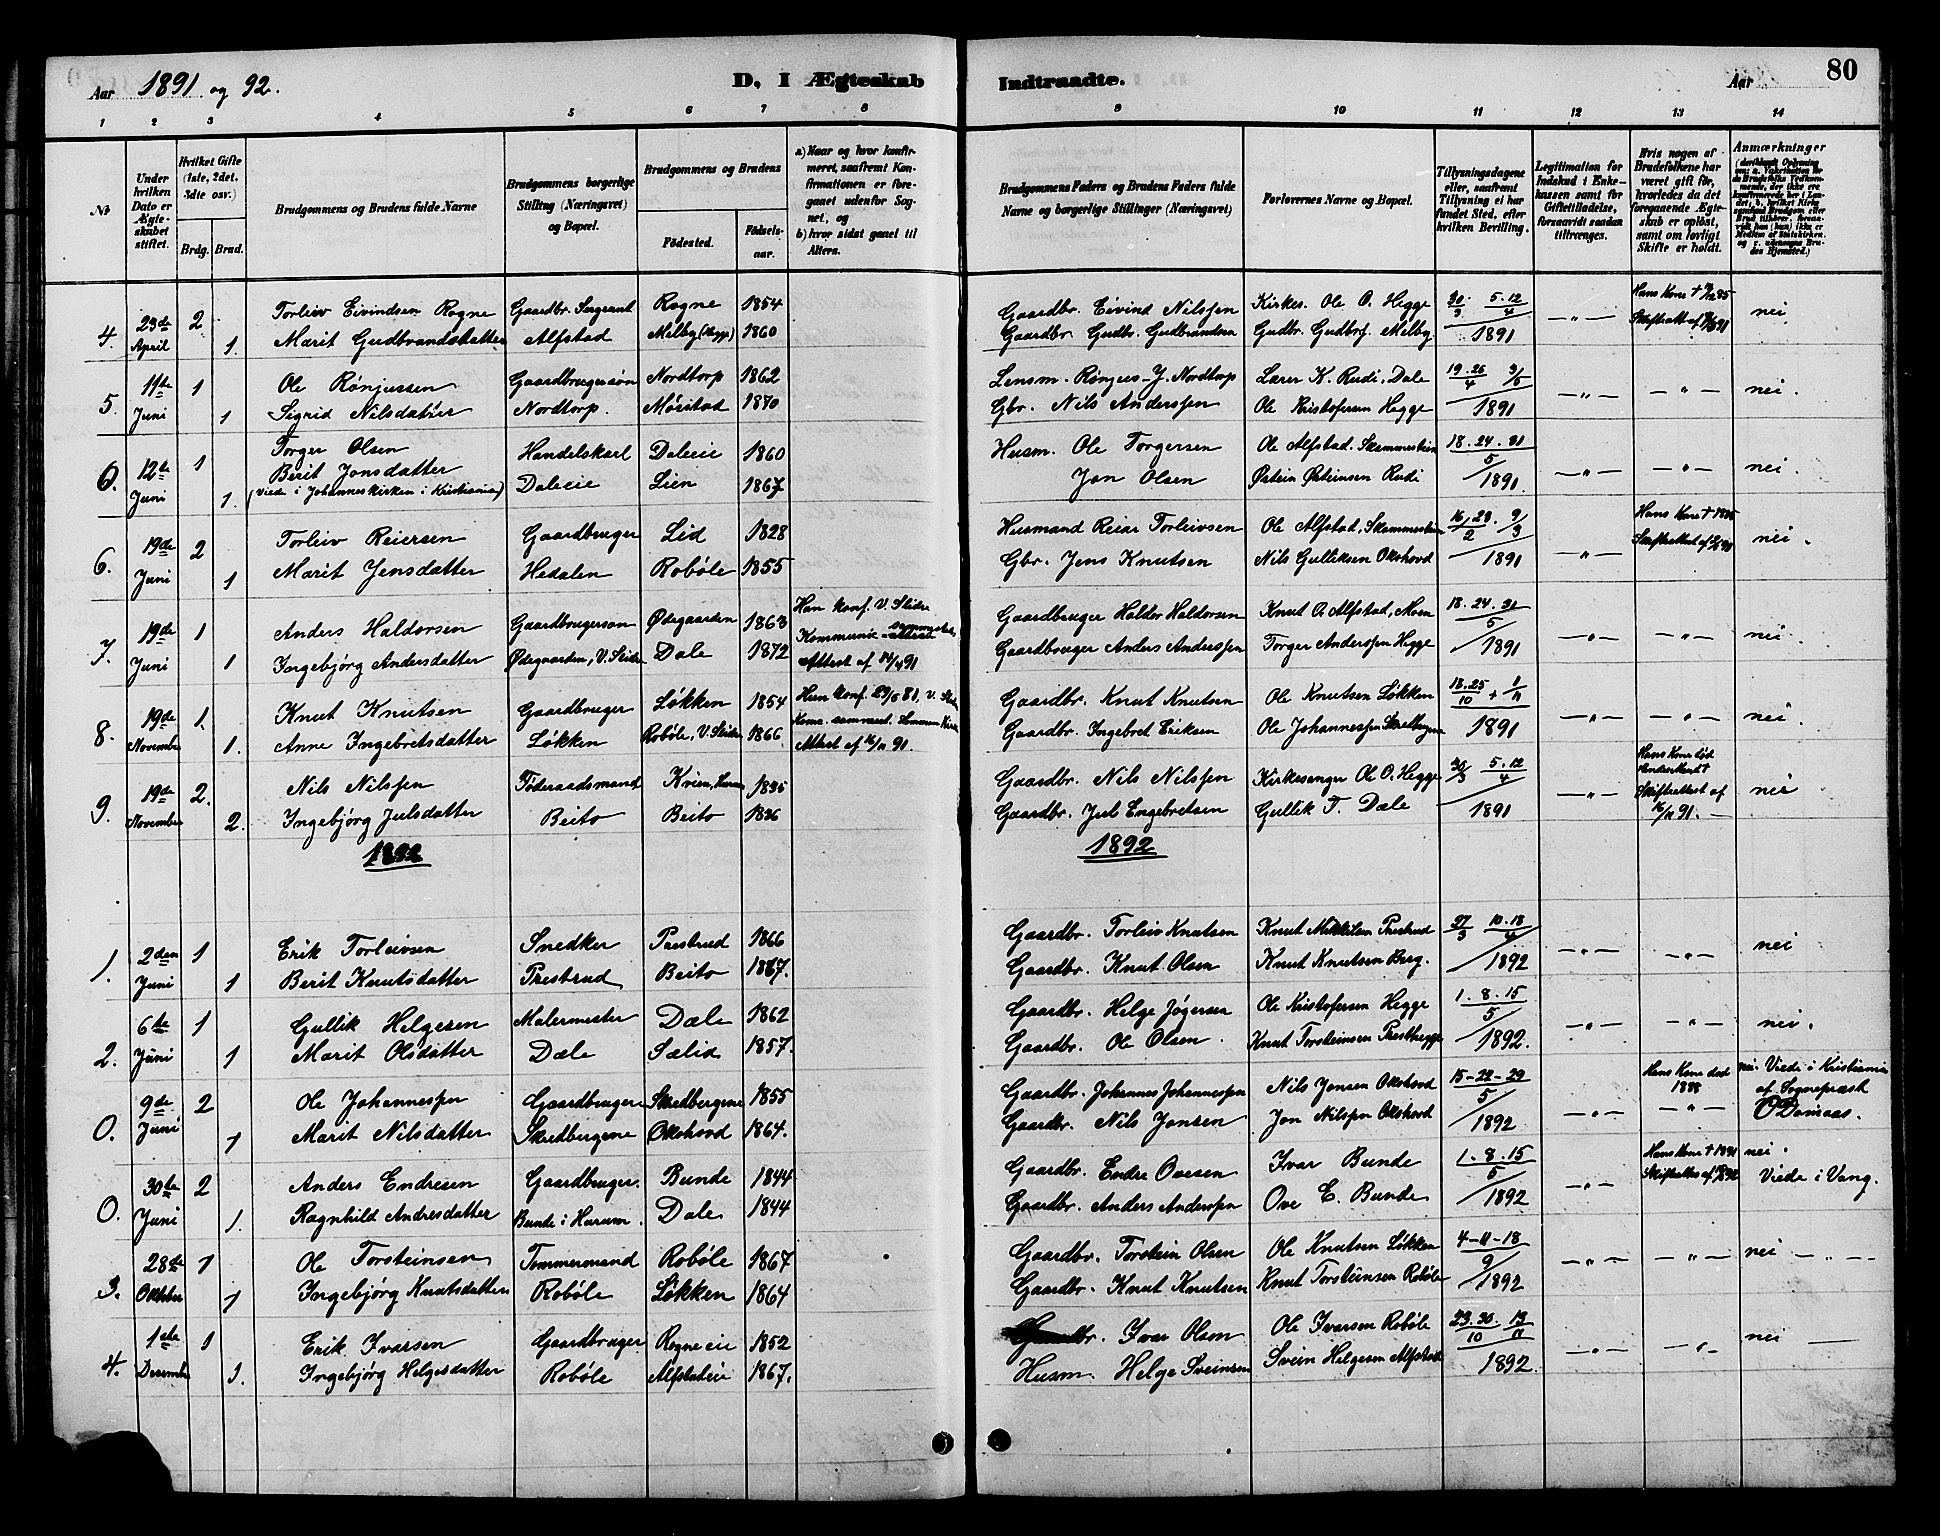 Aar 1891 og 92. D, I Ægteskab Indtraadte. Aar 80
1 2 3 4 5 6 7 8 9 10 11 12 13 14
№
Under hvilken Dato er Ægteskabet stiftet.
Hvilket Gifte (1ste, 2det, 3die osv.)
Brdg. Brud.
Brudgommens og Brudens fulde Navne
Brudgommens borgerlige Stilling (Næringsvei) og Bopæl.
Brudgommens og Brudens
Fødested. Fødselsaar.
a) Naar og hvor konfirmeret, saafremt Konfirmationen er foregaaet udenfor Sognet, og
b) hvor sidst gaaet til Alters.
Brudgommens Faders og Brudens Faders fulde Navne og borgerlige Stillinger (Næringsvei)
Forlovernes Navne og Bopæl.
Tillysningsdagene eller, saafremt Tillysning ei har fundet Sted, efter hvilken Bevilling.
Legitimation for Indskud i Enkekassen samt for Giftetilladelse, forsaavidt saadan tiltrænges.
Hvis nogen af Brudefolkene har været gift før, hvorledes da det foregaaende Ægteskab er opløst, samt om lovligt Skifte er holdt.
Anmærkninger
4. 23de April 2 Torleiv Eivindsen Rogne Gaardbr. Sergeant Rogne 1854 Gaardbr. Eivind Nilsssen Kirkes. Ole O. Hegge 30/3 5.12/4 Hans Kone †
1. Marit Gudbrandsdatter Alfstad Melby (Hegge) 1860 Gaardbr. Gudbr. Gudbrandsen Gudbr. Gudbrs. Melby 1891 —„— Skifteattest af nei
5. 11te Juni 1 Ole Rønjussen Gaardbrugersøn Nordtorp 1862 Lensm. Rønjus J. Nordtorp Lærer K. Rudi, Dale 19.26/4 3/5
1 Sigrid Nilsdatter Nordtorp. Møristad 1870 Gbr. Nils Anderssen Ole Kristofersen Hegge 1891 —„— —„— nei.
6. 12te Juni 1 Torger Olsen Handelskarl Daleie 1860 Husm. Ole Torgersen Ole Alfstad. Skammestein 18.24.31/5
1. Berit Jonsdatter Daleie Lien 1867 Jon Olsen Østein Østeinsen Rudi 1891. —„— —„— nei.
(Viede i Johanneskirken i Kristiania)
6. 19de Juni 2 Torleiv Reiersen Gaardbruger Lid 1828 Husmand Reiar Torleivsen Ole Alfstad, Skammestein 16/2 23. 9/3 Hans Kone †
1 Marit Jensdatter Hedalen Robøle 1855 Gbr. Jens Knutsen Nils Gulliksen Okshovd 1891 „ Skifteattest af nei.
7. 19de Juni 1 Anders Haldorsen Gaardbrugersøn Ødegaarden 1863 Han konf. V. Slidre Gaardbruger Haldor Haldorsen Knut O. Alfstad, Moen 18.24.31/5
1 Ingebjørg Andersdatter Ødegaarden, V. Slidre Dale 1872 Kommunic. sammesteds Attest af 14/4 91 Gaardbruger Anders Anderssen Torger Anderssen Hegge 1891 —„— —„— nei.
8. 19de November 1. Knut Knutsen Gaardbruger Løkken 1854 Hun konf. 29/5 81. V. Slidre Gaardbr. Knut Knutsen Ole Knutsen Løkken 18.25/10 + 1/11
1. Anne Ingebretsdatter Løkken Robøle, V. Slidre 1866 Attest af 16/11 91. Gaardbr. Ingebret Eriksen Ole Johannessen Skredbergene 1891 —„— —„— nei.
9. 19de November 2. Nils Nilssen Føderaadsmand Kvien 1835 Gaardbr. Nils Nilssen Kirkesanger Ole O. Hegge 30/3 5.12/4 Hans Kone død
2. Ingebjørg Julsdatter Beito Beito 1836 Gaardbr. Jul Engebretsen Gullik T. Dale 1891 —„— Skifteattest af 16/11 91. — nei
1892 1892
1. 2den Juni 1 Erik Torleivsen Snedker Præstrud 1866 Gaardbr. Torleiv Knutsen Knut Mikkelsen Præstrud 27/3 10.18/4
1 Berit Knutsdatter Præstrud Beito 1867. Gaardbr. Knut Olsen Knut Knutsen Berg. 1892 —„— —„— nei
2. 6te Juni 1 Gullik Helgesen Malermester Dale 1862 Gaardbr. Helge Jøgersen Ole Kristofersen Hegge 1.8.15/5
1 Marit Olsdatter Dale Sælid 1857. Gaardbr. Ole Olsen. Knut Torsteinsen Presthegge 1892. —„— —„— nei.
0. 9de Juni 2 Ole Johannessen Gaardbruger Skredbergene 1855 Gaardbr. Johannes Johannessen Nils Jonsen Okshovd 15-22-29/5 Hans Kone død 1888 nei. Viede i Kristiania af Sognepræst
1 Marit Nilsdatter Skredbergene Okshovd 1864. Gaardbr. Nils Jonsen Jon Nilssen Okshovd 1892 —„— —„— O Damaas.
0. 30te Juni 2 Anders Endresen Gaardbruger. Bunde 1844 Gaardbr. Endre Ovesen Ivar Bunde 1.8.15/5 Hans Kone † 1891 nei.
1. Ragnhild Andresdatter Bunde i Hurum. Dale 1844 Gaardbr. Anders Anderssen Ove E. Bunde 1892 —„— Skifteattest af Viede i Vang.
3. 28de Oktober 1 Ole Torsteinsen Tømmermand Robøle 1867 Gaardbr. Torstein Olsen Ole Knutsen Løkken 4-11-18/9
1 Ingebjørg Knutsdatter Robøle Løkken 1864 Gaardbr. Knut Knutsen Knut Torsteinsen Robøle 1892 —„— —„— nei —„—
4. 1ste Desember 1 Erik Ivarsen Gaardbruger Rogneeie 1852 Gaardbr. Ivar Olsen Ole Ivarsen Robøle 23.30/10 13/11
1. Ingebjørg Helgesdatter Robøle Alfstadeie 1867. Husm. Helge Sveinsen Svein Helgesen Alfstad 1892 —„— —„— nei —